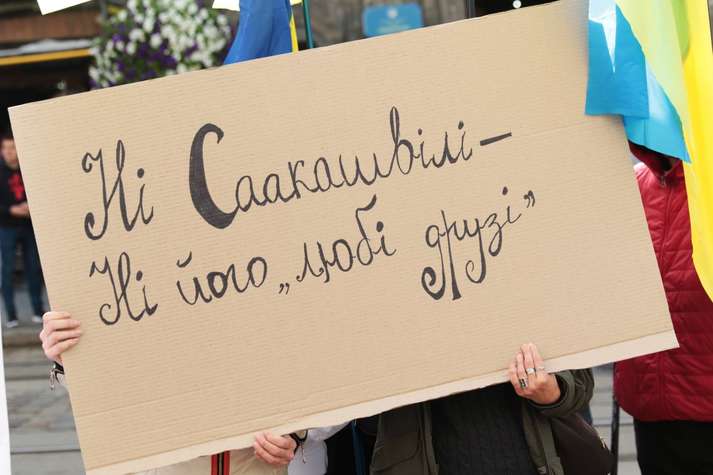 Ні Саакашвілі –
Ні його „любі друзі”